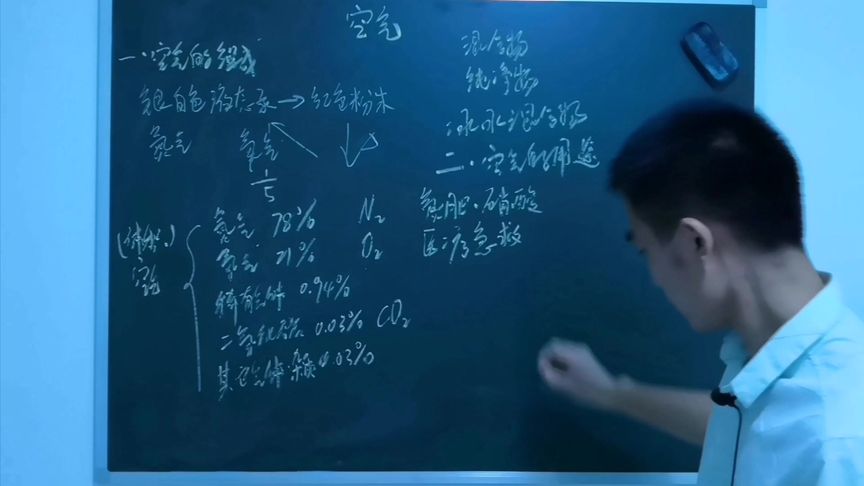 空气
一、空气的组成
银白色液态汞→红色粉末
氮气 氧气
1/5
(体积)
空气
氮气 78% N₂
氧气 21% O₂
稀有气体 0.94%
二氧化碳 0.03% CO₂
其它气体杂质 0.03%
混合物
纯净物
冰水混合物
二、空气的用途
氮肥、硝酸
医疗急救